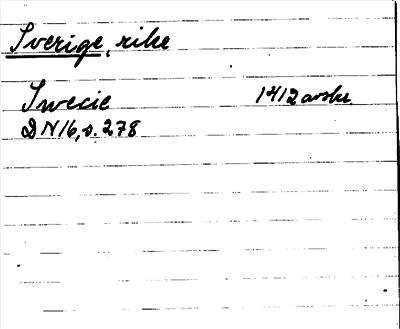 Sverige, rike
Swecie 1412 avskr.
DN 16, s. 278